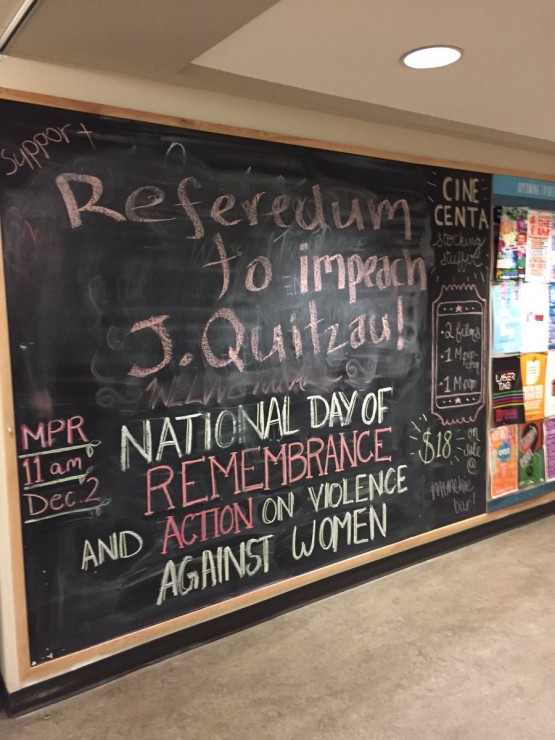 Support
Referedum
to impeach
J. Quitzau!
NATIONAL DAY OF
REMEMBRANCE
AND ACTION ON VIOLENCE
AGAINST WOMEN
MPR
11 am
Dec. 2
CINE
CENTA
stocking
2 films
$18
on
sale
@
munchie
bar!
LASER
TAG